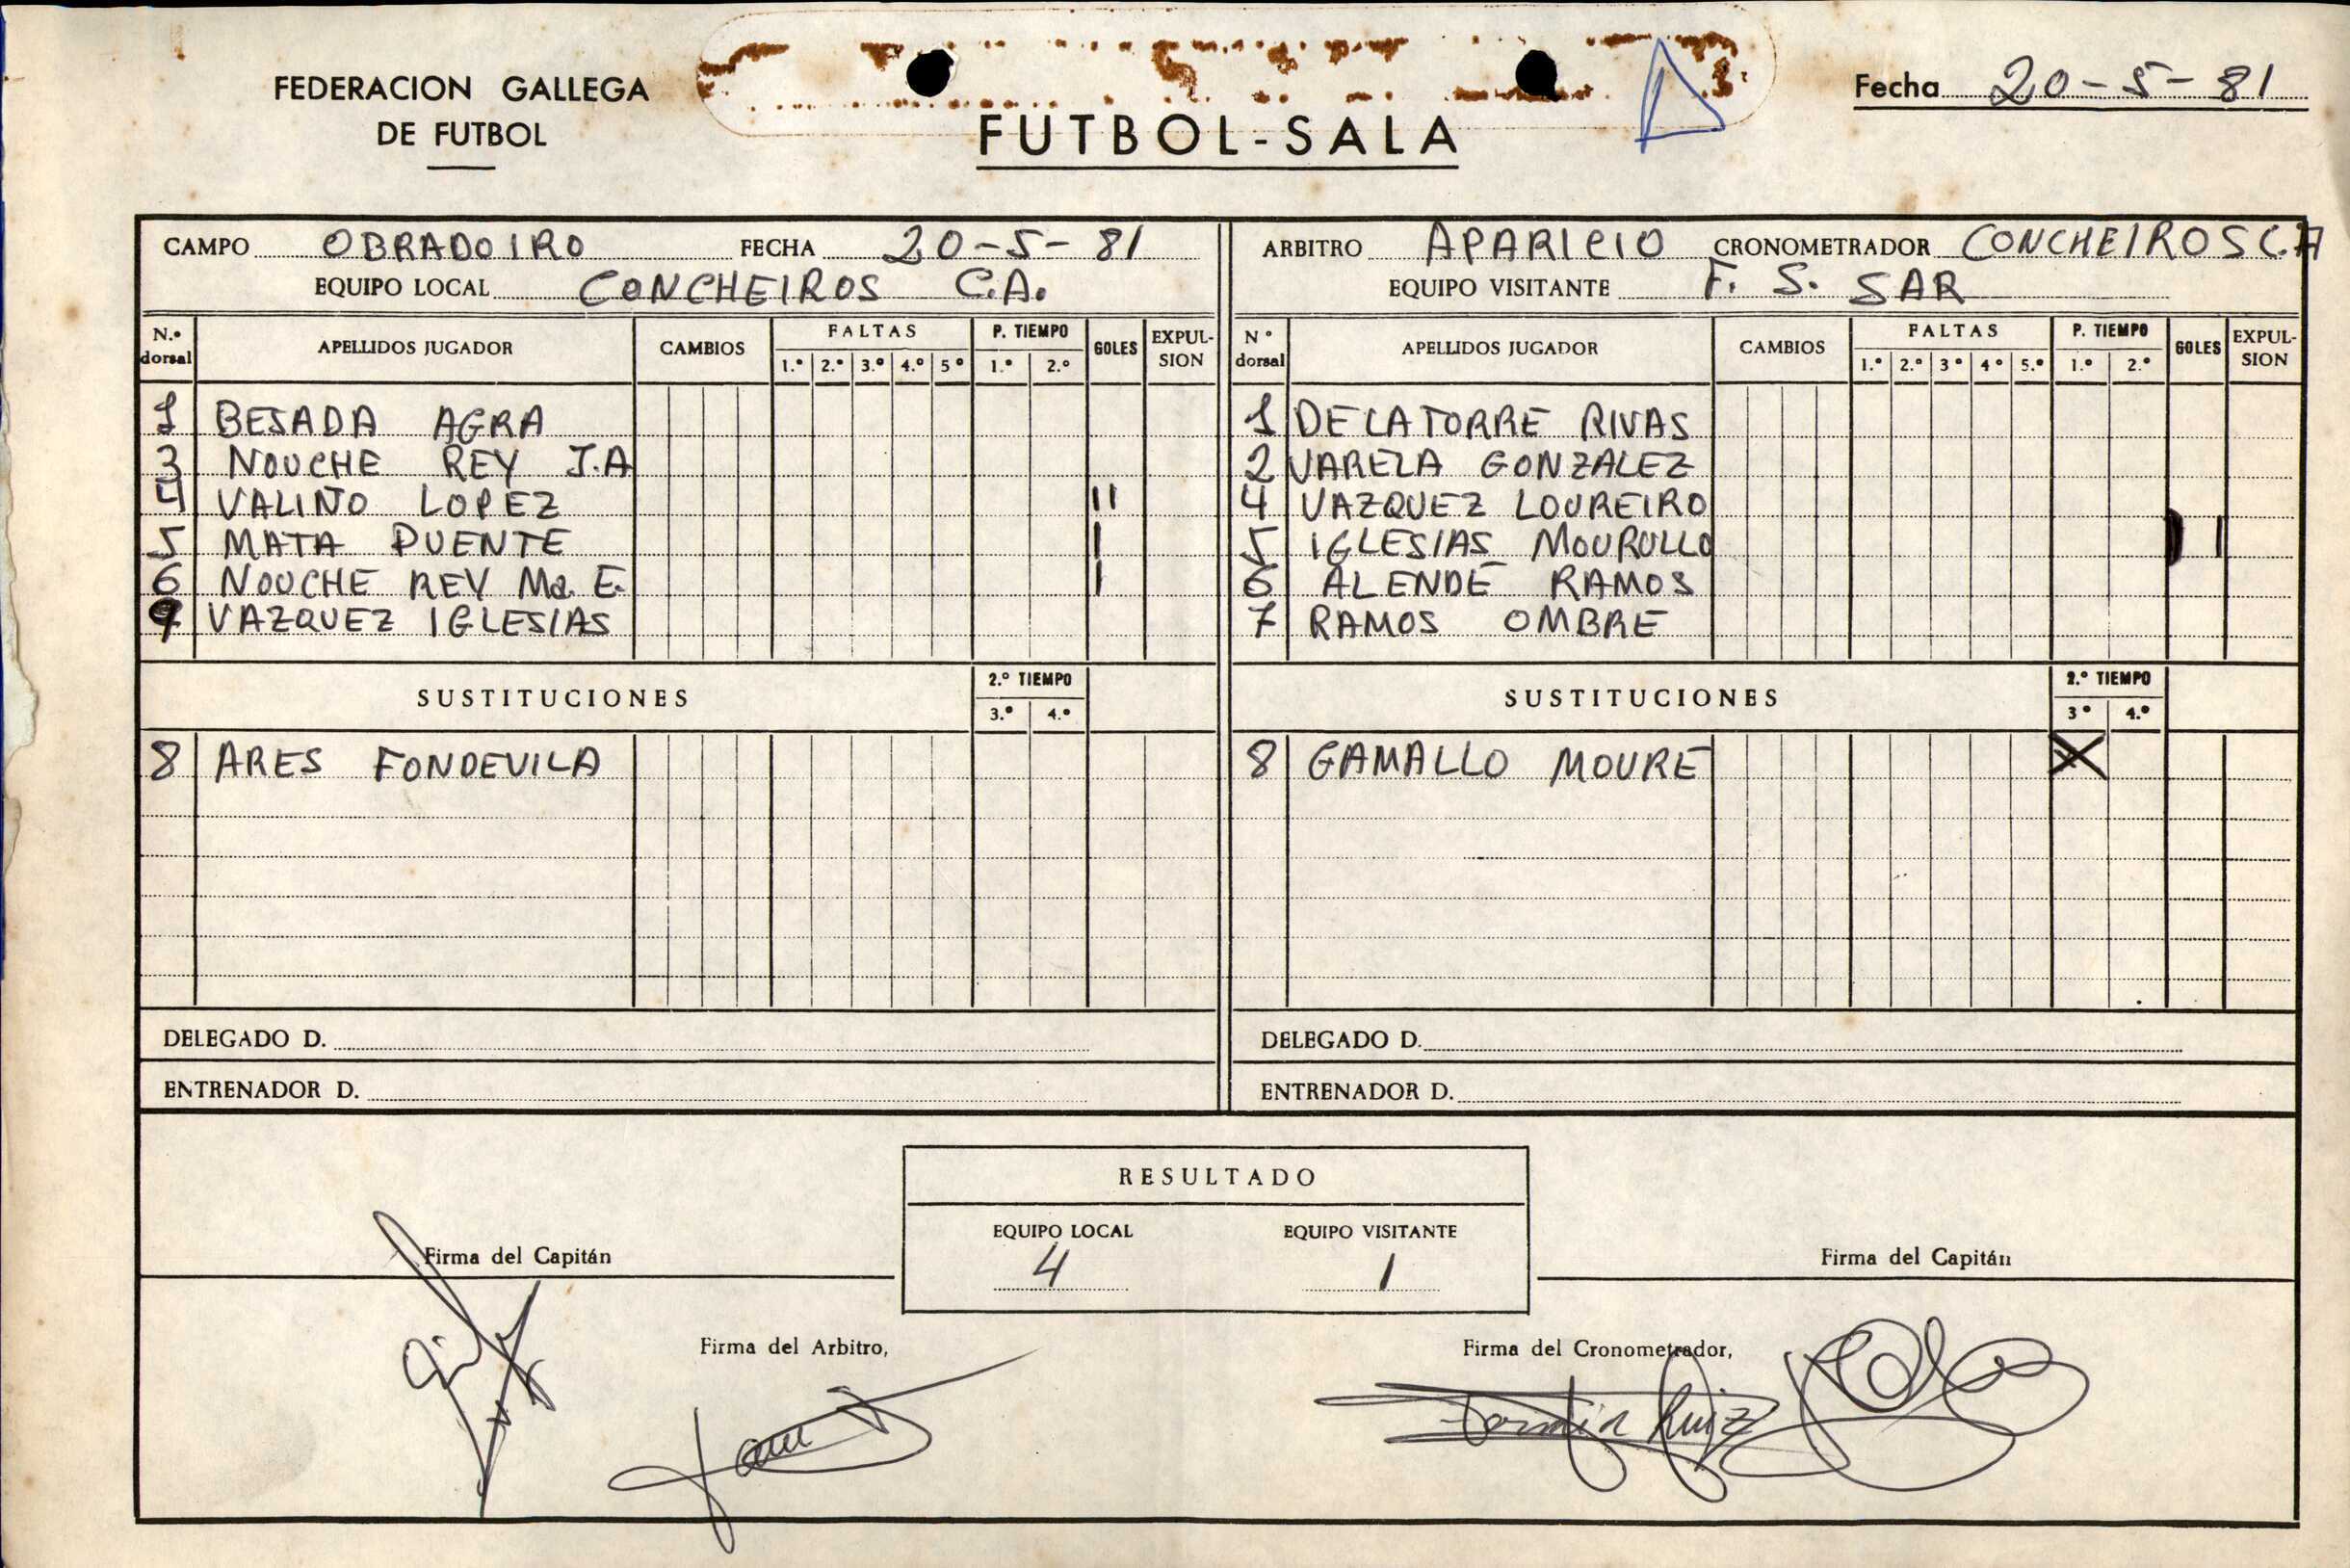 FEDERACION GALLEGA
DE FUTBOL
FUTBOL-SALA
Fecha 20-5-81
CAMPO OBRADOIRO FECHA 20-5-81
EQUIPO LOCAL CONCHEIROS C.A.
ARBITRO APARICIO CRONOMETRADOR CONCHEIROS C.A
EQUIPO VISITANTE F. S. SAR
N.º dorsal APELLIDOS JUGADOR CAMBIOS FALTAS 1.º 2.º 3.º 4.º 5º P. TIEMPO 1.º 2.º GOLES EXPUL-SION
1 BESADA AGRA
3 NOUCHE REY J.A
4 VALIÑO LOPEZ II
5 MATA PUENTE I
6 NOUCHE REY Mª. E. I
9 VAZQUEZ IGLESIAS
SUSTITUCIONES 2.º TIEMPO 3.º 4.º
8 ARES FONDEVILA
DELEGADO D.
ENTRENADOR D.
Nº dorsal APELLIDOS JUGADOR CAMBIOS FALTAS 1.º 2.º 3º 4º 5.º P. TIEMPO 1.º 2.º GOLES EXPUL-SION
1 DE LA TORRE RIVAS
2 VARELA GONZALEZ
4 VAZQUEZ LOUREIRO
5 IGLESIAS MOURULLO I
6 ALENDE RAMOS
7 RAMOS OMBRE
SUSTITUCIONES 2.º TIEMPO 3º 4.º
8 GAMALLO MOURE X
DELEGADO D.
ENTRENADOR D.
RESULTADO
EQUIPO LOCAL EQUIPO VISITANTE
4 1
Firma del Capitán
Firma del Capitán
Firma del Arbitro,
Firma del Cronometrador,
Fermín Ruiz